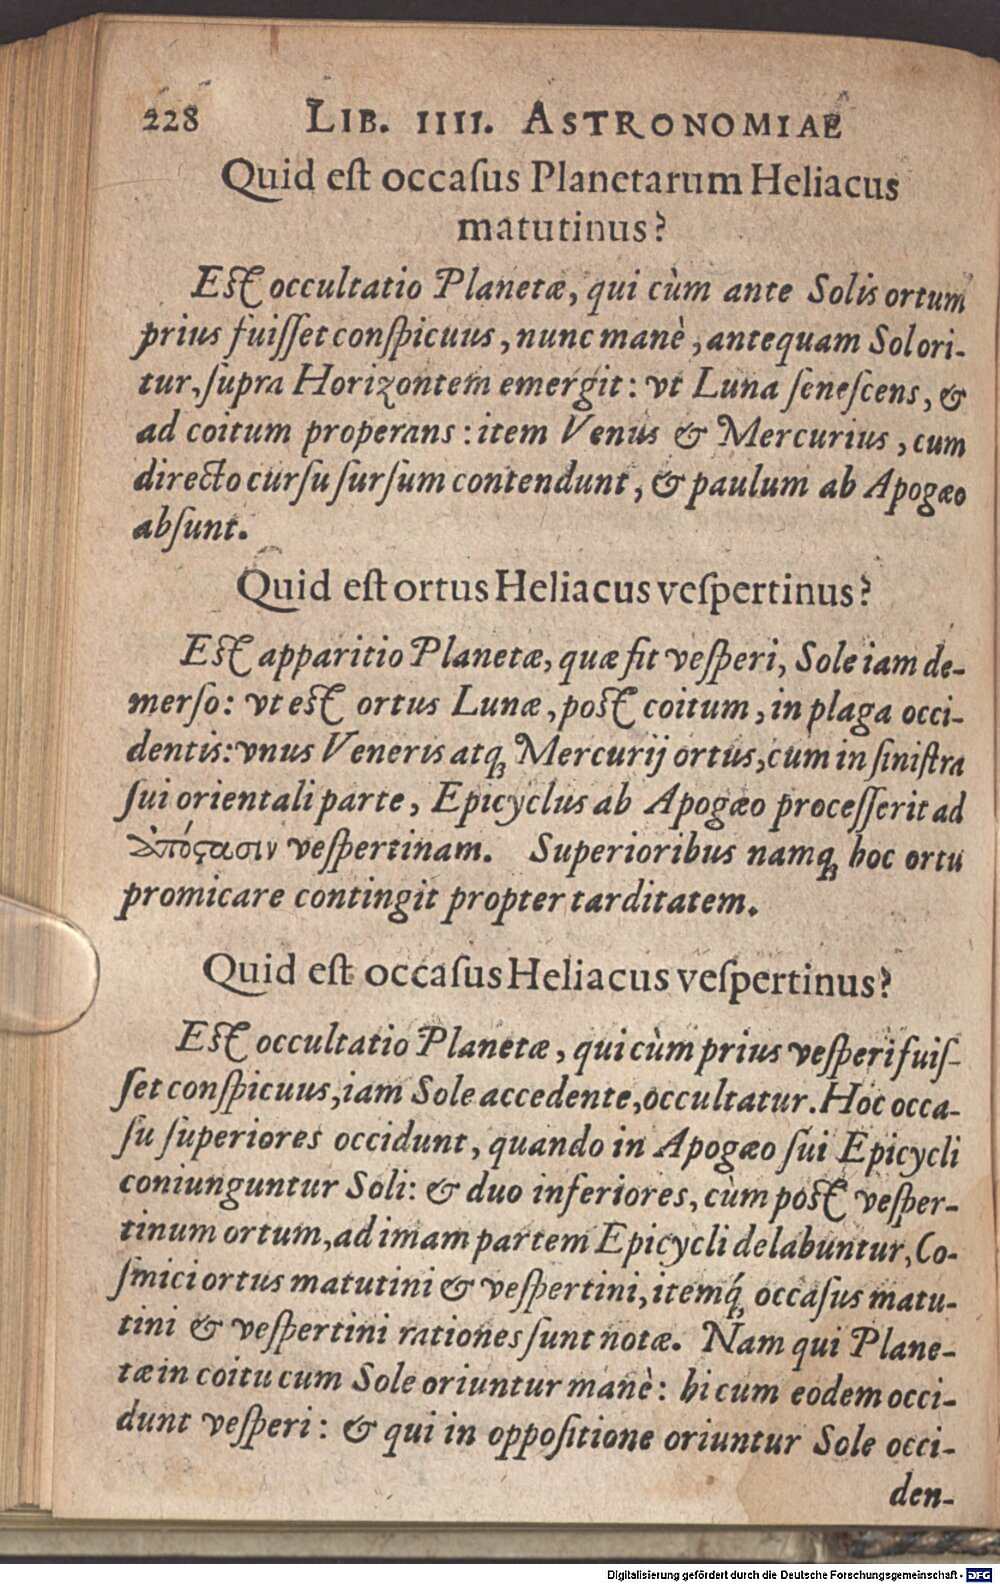 228 LIB. IIII. ASTRONOMIAE
Quid eſt occaſus Planetarum Heliacus
matutinus?
Eſt occultatio Planetæ, qui cùm ante Solis ortum
prius fuiſſet conſpicuus, nunc manè, antequam Sol ori-
tur, ſupra Horizontem emergit: vt Luna ſeneſcens, &
ad coitum properans: item Venus & Mercurius, cum
directo curſu ſurſum contendunt, & paulum ab Apogæo
abſunt.
Quid eſt ortus Heliacus veſpertinus?
Eſt apparitio Planetæ, quæ fit veſperi, Sole iam de-
merſo: vt eſt ortus Lunæ, poſt coitum, in plaga occi-
dentis: vnus Veneris atq; Mercurij ortus, cum in ſiniſtra
ſui orientali parte, Epicyclus ab Apogæo proceſſerit ad
ἀπόςασιν veſpertinam. Superioribus namq; hoc ortu
promicare contingit propter tarditatem.
Quid eſt occaſus Heliacus veſpertinus?
Eſt occultatio Planetæ, qui cùm prius veſperi fuiſ-
ſet conſpicuus, iam Sole accedente, occultatur. Hoc occa-
ſu ſuperiores occidunt, quando in Apogæo ſui Epicycli
coniunguntur Soli: & duo inferiores, cùm poſt veſper-
tinum ortum, ad imam partem Epicycli delabuntur, Co-
ſmici ortus matutini & veſpertini, itemq́; occaſus matu-
tini & veſpertini rationes ſunt notæ. Nam qui Plane-
tæ in coitu cum Sole oriuntur manè: hi cum eodem occi-
dunt veſperi: & qui in oppoſitione oriuntur Sole occi-
den-
Digitalisierung gefördert durch die Deutsche Forschungsgemeinschaft - DFG